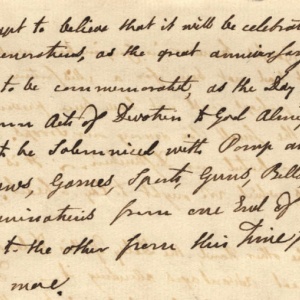 apt to believe that it will be celebrat
enerations, as the great anniversary
to be commemorated, as the Day
Acts of Devotion to God Alm
t be solemnized with Pomp an
ws, Games, Sports, Guns, Bells
uminations from one End of
to the other from this Time f
more.